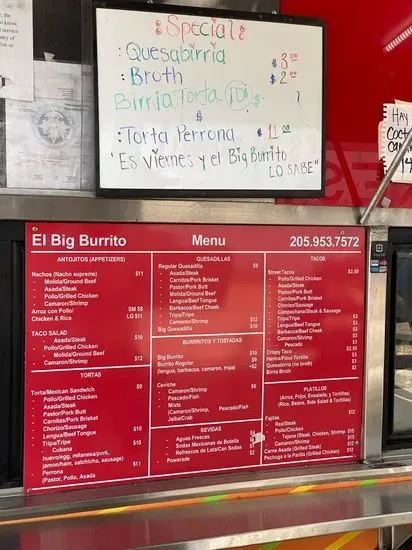 Special
:Quesabirria $3.00
:Broth $2.00
Birria Torta 10
$
:Torta Perrona $11.00
"Es viernes y el Big Burrito
LO SABE"
HAY
El Big Burrito Menu 205.953.7572
ANTOJITOS (APPETIZERS)
Nachos (Nacho supreme) $11
- Molida/Ground Beef
- Asada/Steak
- Pollo/Grilled Chicken
- Camaron/Shrimp
Arroz con Pollo/ SM $8
Chicken & Rice LG $11
TACO SALAD
- Asada/Steak $10
- Pollo/Grilled Chicken
- Molida/Ground Beef
- Camaron/Shrimp $12
TORTAS
Torta/Mexican Sandwich $9
- Pollo/Grill Chicken
- Asada/Steak
- Pastor/Pork Butt
- Carnitas/Pork Brisket
- Chorizo/Sausage
- Lengua/Beef Tongue $10
- Tripa/Tripe $10
- Cubana
huevo/egg, milanesa/pork,
jamon/ham, salchicha, sausage) $11
- Perrona
(Pastor, Pollo, Asada $11
QUESADILLAS
Regular Quesadilla $9
- Asada/Steak
- Carnitas/Pork Brisket
- Pastor/Pork Butt
- Molida/Ground Beef
- Lengua/Beef Tongue
- Barbacoa/Beef Cheek
- Tripa/Tripe
- Camaron/Shrimp $12
Big Quesadilla $10
BURRITOS Y TOSTADAS
Big Burrito $10
Burrito Regular $9
(lengua, barbacoa, camaron, tripa) +$2
Ceviche $6
- Camaron/Shrimp
- Pescado/Fish
- Mixta
(Camaron/Shrimp, Pescado/Fish
Jaiba/Crab
BEVIDAS
- Aguas Frescas
- Sodas Mexicanas de Botella
- Refrescos de Lata/Can Sodas
- Powerade $2
TACOS
Street Tacos $2.50
- Pollo/Grilled Chicken
- Asada/Steak
- Pastor/Pork Butt
- Molida/Ground Beef
- Carnitas/Pork Brisket
- Chorizo/Sausage
- Campechano/Steak & Sausage
- Tripa/Tripe $3
- Lengua/Beef Tongue $3
- Barbacoa/Beef Cheek $3
- Camaron/Shrimp $3
- Pescado $3
Crispy Taco $2.50
Harina/Flour Tortilla $3
Quesabirria (no broth) $3
Birria Broth $2
PLATILLOS
(Arroz, Frijol, Ensalada, y Tortillas)
(Rice, Beans, Side Salad & Tortillas)
Fajitas $12
- Res/Steak
- Pollo/Chicken
- Tejana (Steak, Chicken, Shrimp $15
- Camaron/Shrimp $15
Carne Asada (Grilled Steak) $12
Pechoga a la Parilla (Grilled Chicken)